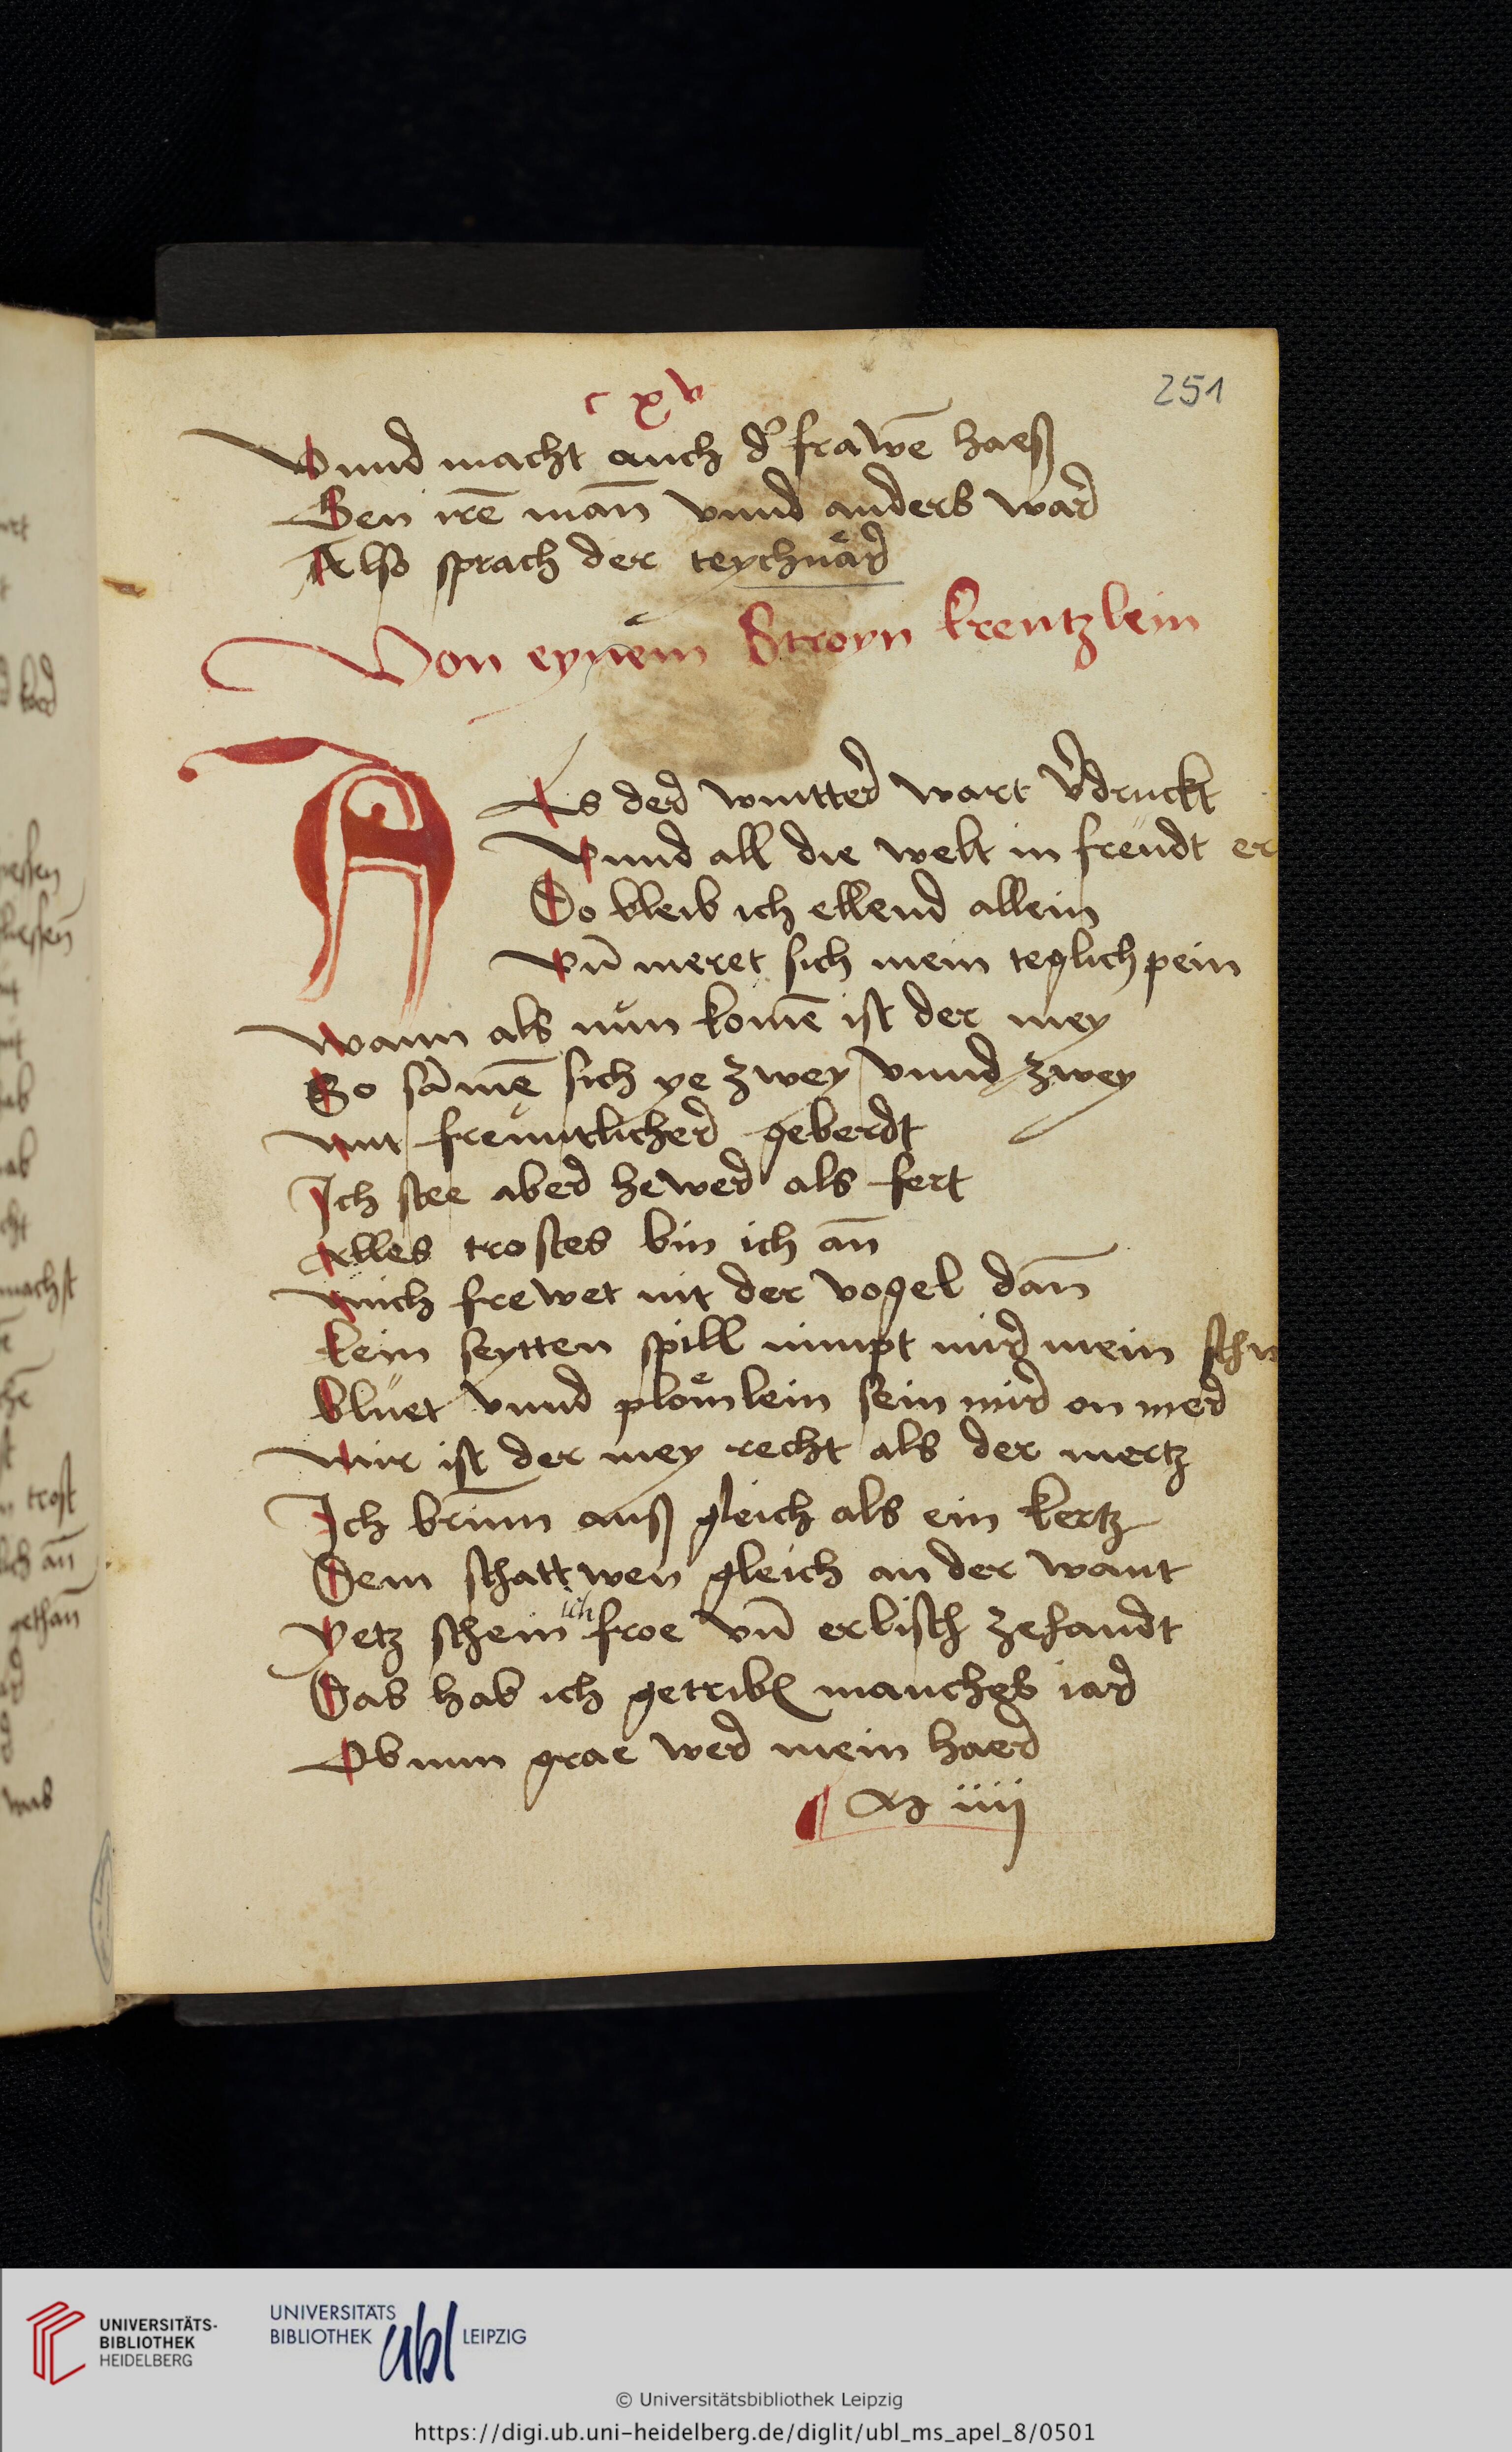 c xv
251
Vnnd macht auch d' frawē haeß
Gen irē man̄ vnnd anders war
Also sprach der teychnär
Von eynem Stroyn krentzlein
Als der wintter wart v'druckt
Vnnd all die welt in freüdt er
Do bleib ich ellend allein
Vn̄ meret sich mein teglich pein
Wann als nun komē ist der mey
So samē sich ye zwey vnnd zwey
mit freuntlicher geberdt
Ich stee aber hewer als fert
Alles trostes bin ich an̄
mich frewet nit der vogel dan̄
kein seytten spill nimpt mir mein
blüet vnnd plömlein sein mir on mer
mir ist der mey recht als der mertz
Ich brinn auß gleich als ein kertz
Dem schattwen gleich an der want
Yetz schein ich froe vn̄ erlisch zehandt
Das hab ich getribn̄ manches iar
Ob nun grae wer mein haer
iiij
nessen
liessen
machst
trost
ch an̄
gethan̄
UNIVERSITÄTS-
BIBLIOTHEK
HEIDELBERG
UNIVERSITÄTS
BIBLIOTHEK ubl LEIPZIG
© Universitätsbibliothek Leipzig
https://digi.ub.uni-heidelberg.de/diglit/ubl_ms_apel_8/0501